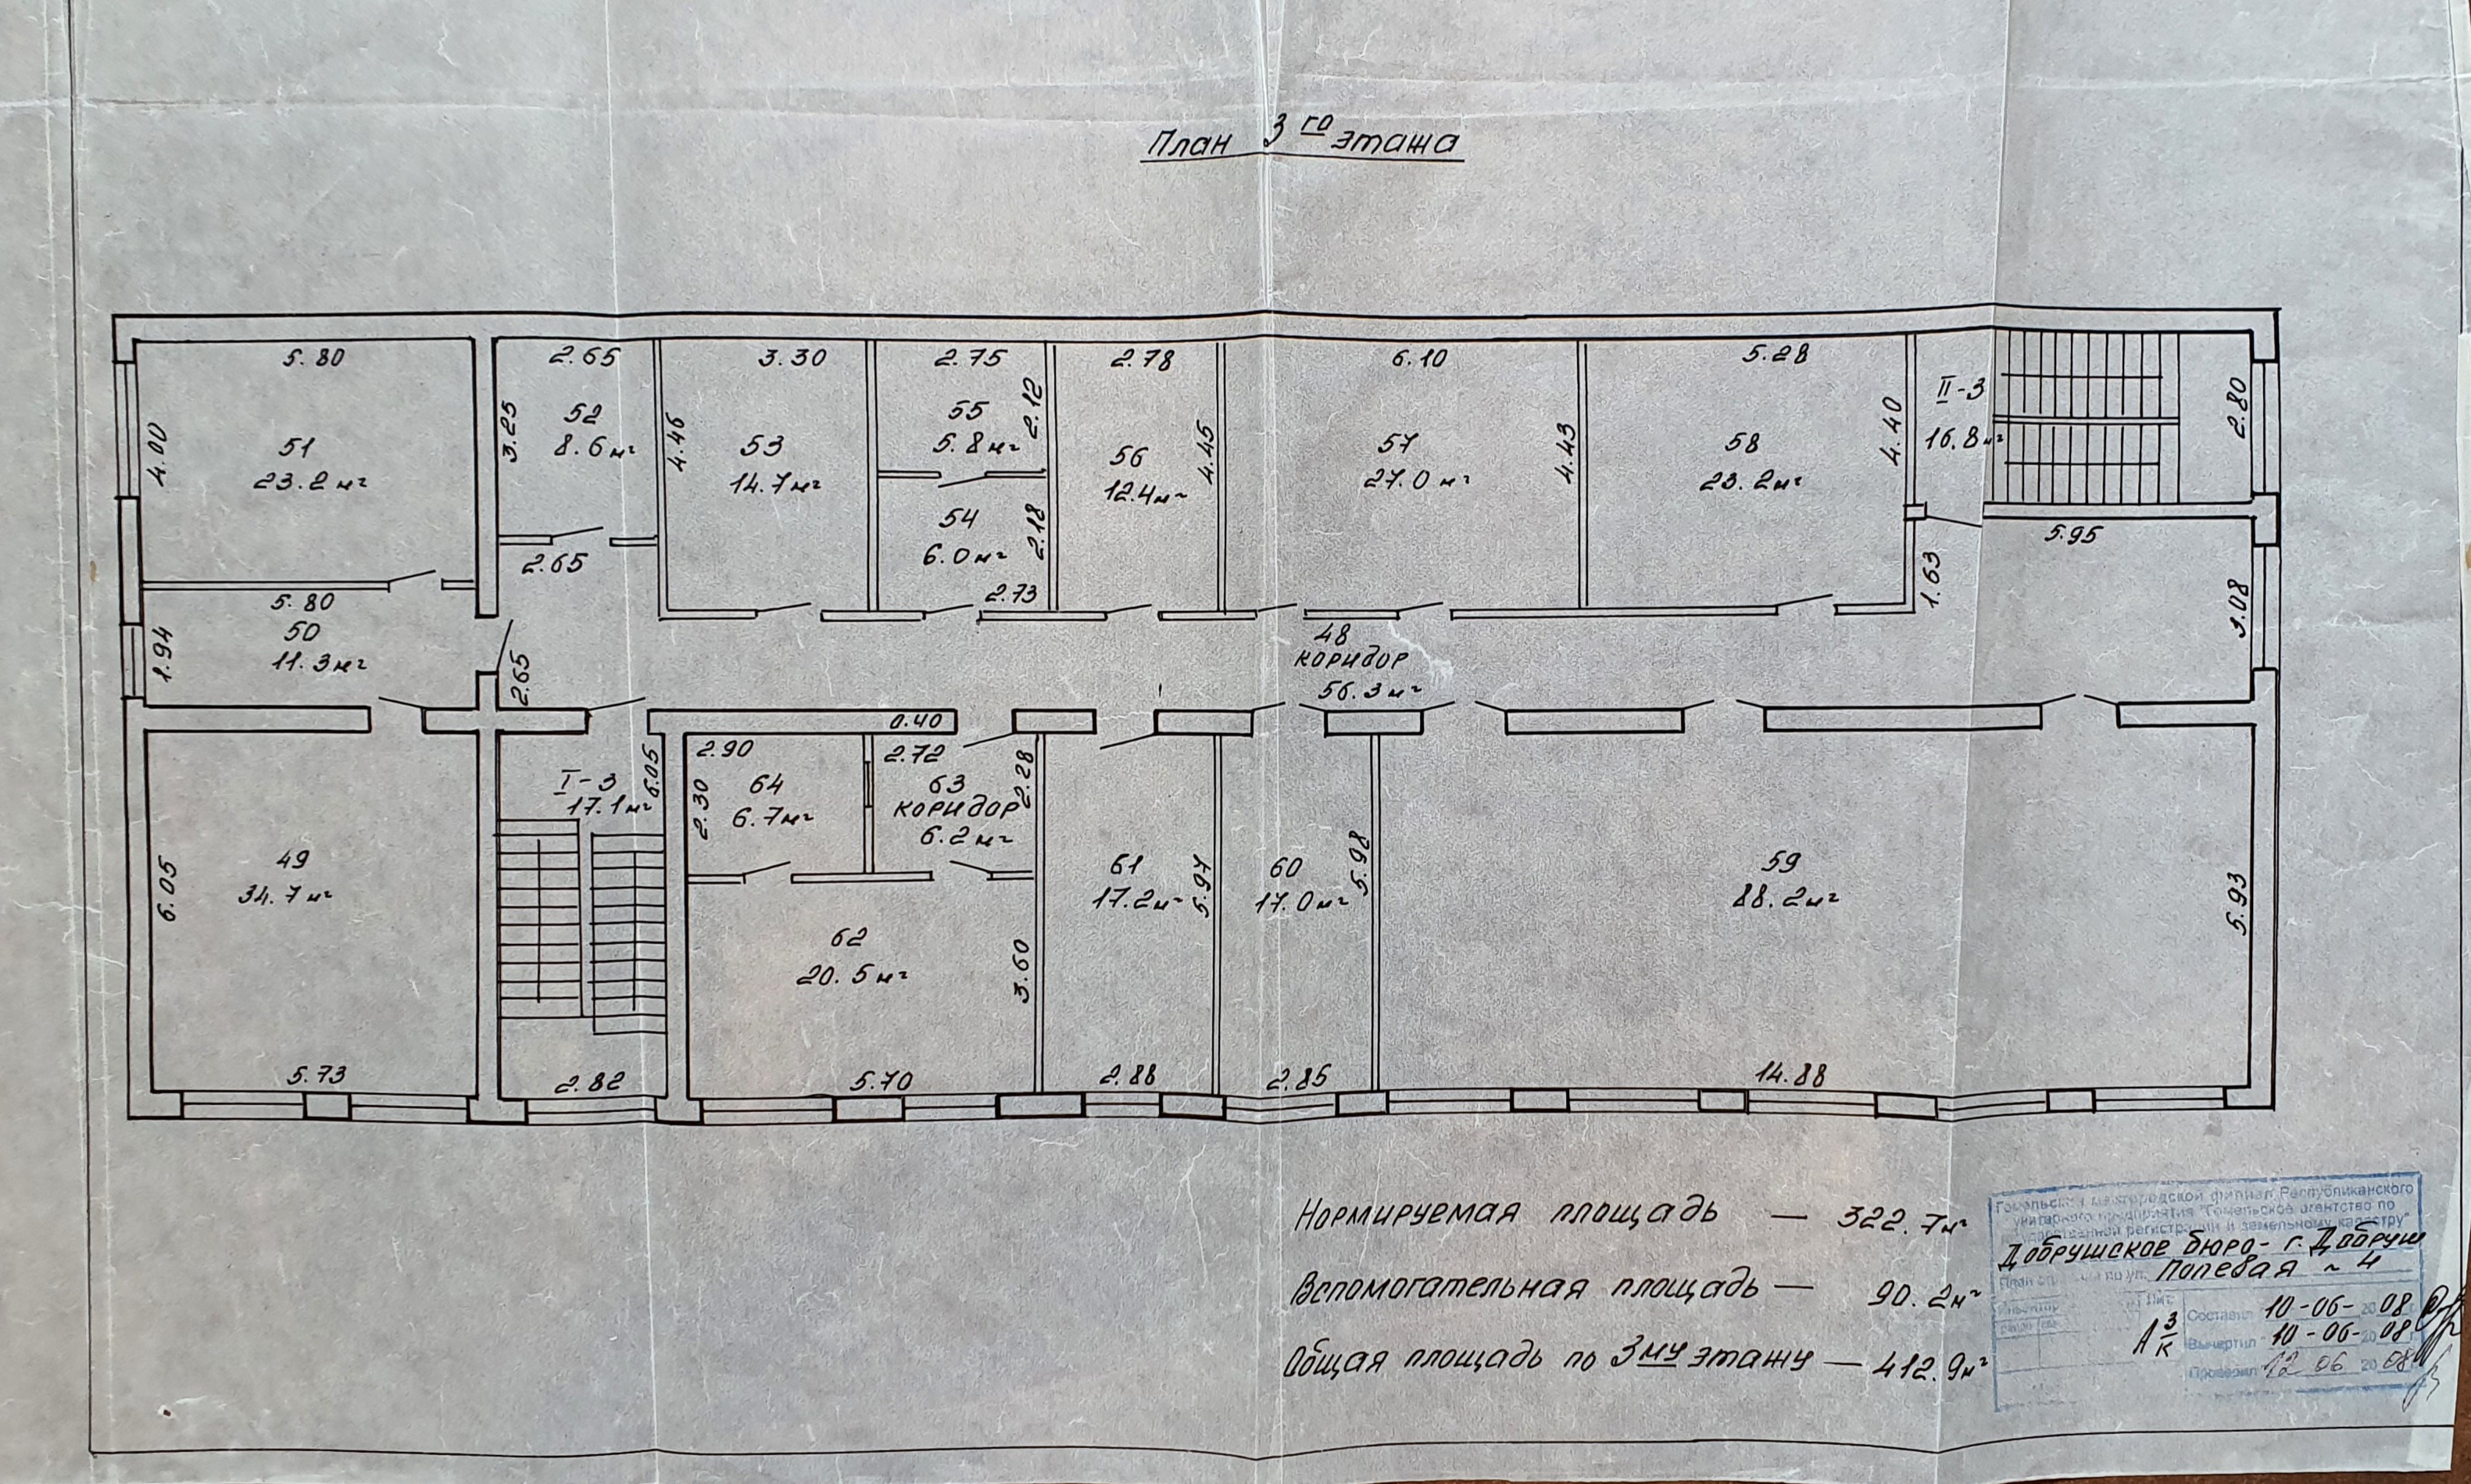 План 3го этажа
5.80
2.65
3.30
2.75
2.78
6.10
5.28
4.00
51
23.2 м²
3.25
52
8.6 м²
4.46
53
14.7 м²
55
5.8 м²
2.12
56
12.4 м²
4.45
57
27.0 м²
4.43
58
23.2 м²
4.40
II-3
16.8 м²
2.80
54
6.0 м²
2.18
2.73
2.65
5.95
1.63
3.08
5.80
50
11.3 м²
1.94
2.65
48
коридор
56.3 м²
0.40
I-3
17.1 м²
6.05
2.90
64
6.7 м²
2.30
2.72
63
коридор
6.2 м²
2.28
49
34.7 м²
6.05
5.73
2.82
62
20.5 м²
3.60
5.70
61
17.2 м²
5.97
2.88
60
17.0 м²
5.98
2.85
59
88.2 м²
5.93
14.88
Нормируемая площадь — 322.7 м²
Вспомогательная площадь — 90.2 м²
Общая площадь по 3му этажу — 412.9 м²
филиал Республиканского
унитарного предприятия "Гомельское агентство по
государственной регистрации и земельному кадастру"
Добрушское бюро - г. Добруш
План по ул. Полевая 4
Лит.
А 3/к
Составил 10-06-2008 г.
Вычертил 10-06-2008 г.
Проверил 12 06 2008